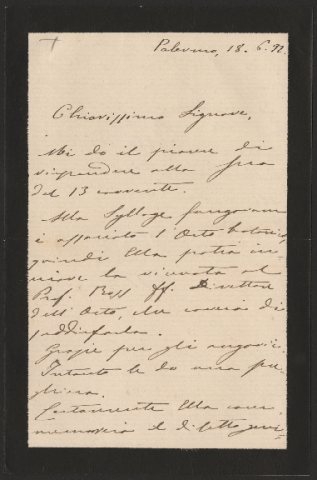 Palermo, 18. 6. 92.
Chiarissimo Signore,
Mi do il piacere di
rispondere alla sua
del 13 corrente.
Alla Sylloge fungorum
è associato l'Orto botanico,
quindi Ella potrà in-
viare la ricevuta al
Prof. ff. Direttore
dell'Orto, che curerà di
soddisfarla.
Grazie per gli augurii.
Intanto le do una pre-
ghiera.
Certamente Ella
il